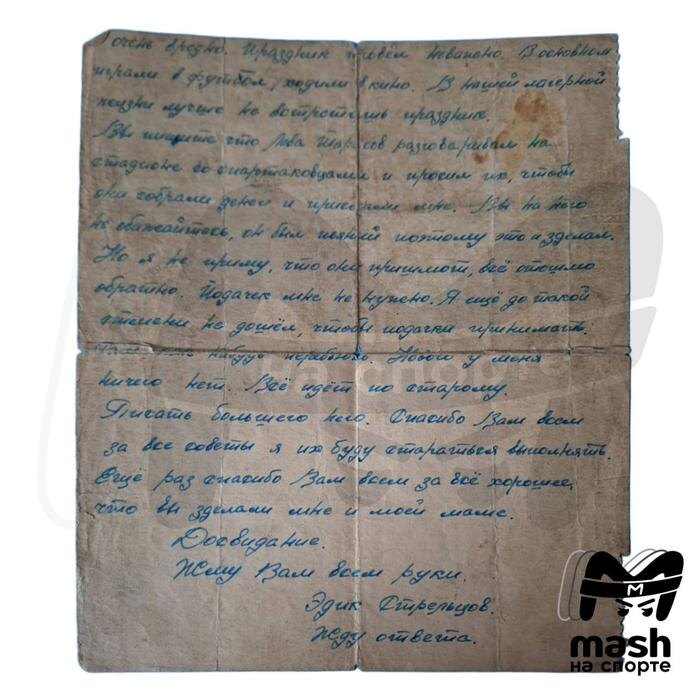 очень вредно. Праздник провём неважно. В основном
играли в футбол, ходили в кино. В нашей лагерной
жизни лучше не встретишь праздник.
Вы пишите что Лёва Тарасов разговаривал на
стадионе со спартаковцами и просил их, чтобы
они собрали денег и прислали мне. Вы на него
не обижайтесь, он был пьяный поэтому это и зделал.
Но я не приму, что они пришлют, всё отошлю
обратно. Подачек мне не нужно. Я ещё до такой
степени не дошёл, чтобы подачки принимать.
нибудь переб Новой у меня
ничего нет. Всё идёт по старому.
Писать большего нечего. Спасибо Вам всем
за все советы я их буду стараться выполнять.
Ещё раз спасибо Вам всем за всё хорошее,
что вы зделали мне и моей маме.
Досвидание.
Жму Вам всем руки.
Эдик Стрельцов.
Жду ответа.
mash
на спорте